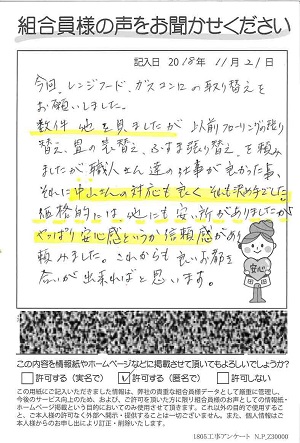 組合員様の声をお聞かせください
記入日 2018年 11月 21日
今回、レンジフード、ガスコンロの取り替えを
お願いしました。
数件 他を見ましたが 以前フローリングの張り
替え、畳の表替え、ふすま張り替え、を頼み
ましたが 職人さん達の仕事が良かった事、
それに 中山さんの対応も良く それも決め手でした。
価格的には、他にも安い所がありましたが
やっぱり安心感というか 信頼感があり
頼みました。これからも 良いお都を
念いが出来ればと思います。
安心
この内容を情報紙やホームページなどに掲載させて頂いてもよろしいでしょうか?
□許可する(実名で) ☑許可する(匿名で) □許可しない
この用紙にご記入いただきました情報は、弊社の貴重な組合員様データとして厳重に管理し、
今後のサービス向上のため、および、ご許可を頂いた方に限り組合員様のお声としての情報紙・
ホームページ掲載という目的においてのみ使用させて頂きます。これ以外の目的で使用する
こと、ご本人様の許可なく外部へ開示・提供することは一切ございません。個人情報はご本
人様からのお申し出により訂正・削除いたします。
1805工事アンケート N.P_Z30000